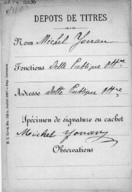 DEPOTS DE TITRES
Nom Michel Yonan
Fonctions Dette Publique Ottne
Adresse Dette Publique Ottne
Spécimen de signature ou cachet
Michel Yonan
Observations